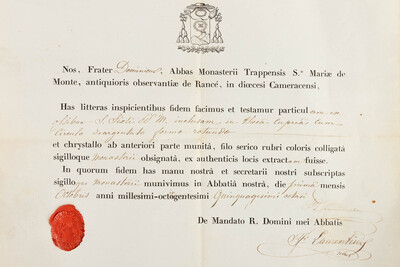 Nos, Frater Dominicus, Abbas Monasterii Trappensis S.æ Mariæ de
Monte, antiquioris observantiæ de Rancé, in diœcesi Cameracensi.
Has litteras inspicientibus fidem facimus et testamur particulam ex
M. inclusam in theca cuprea cum
circulo inargentato formæ rotundæ
et chrystallo ab anteriori parte munitâ, filo serico rubri coloris colligatâ
sigilloque monasterii obsignatâ, ex authenticis locis extractam fuisse.
In quorum fidem has manu nostrâ et secretarii nostri subscriptas
sigilloque monasterii munivimus in Abbatiâ nostrâ, die primâ mensis
Octobris anni millesimi-octogentesimi Quinquagesimi octavi
De Mandato R. Domini mei Abbatis